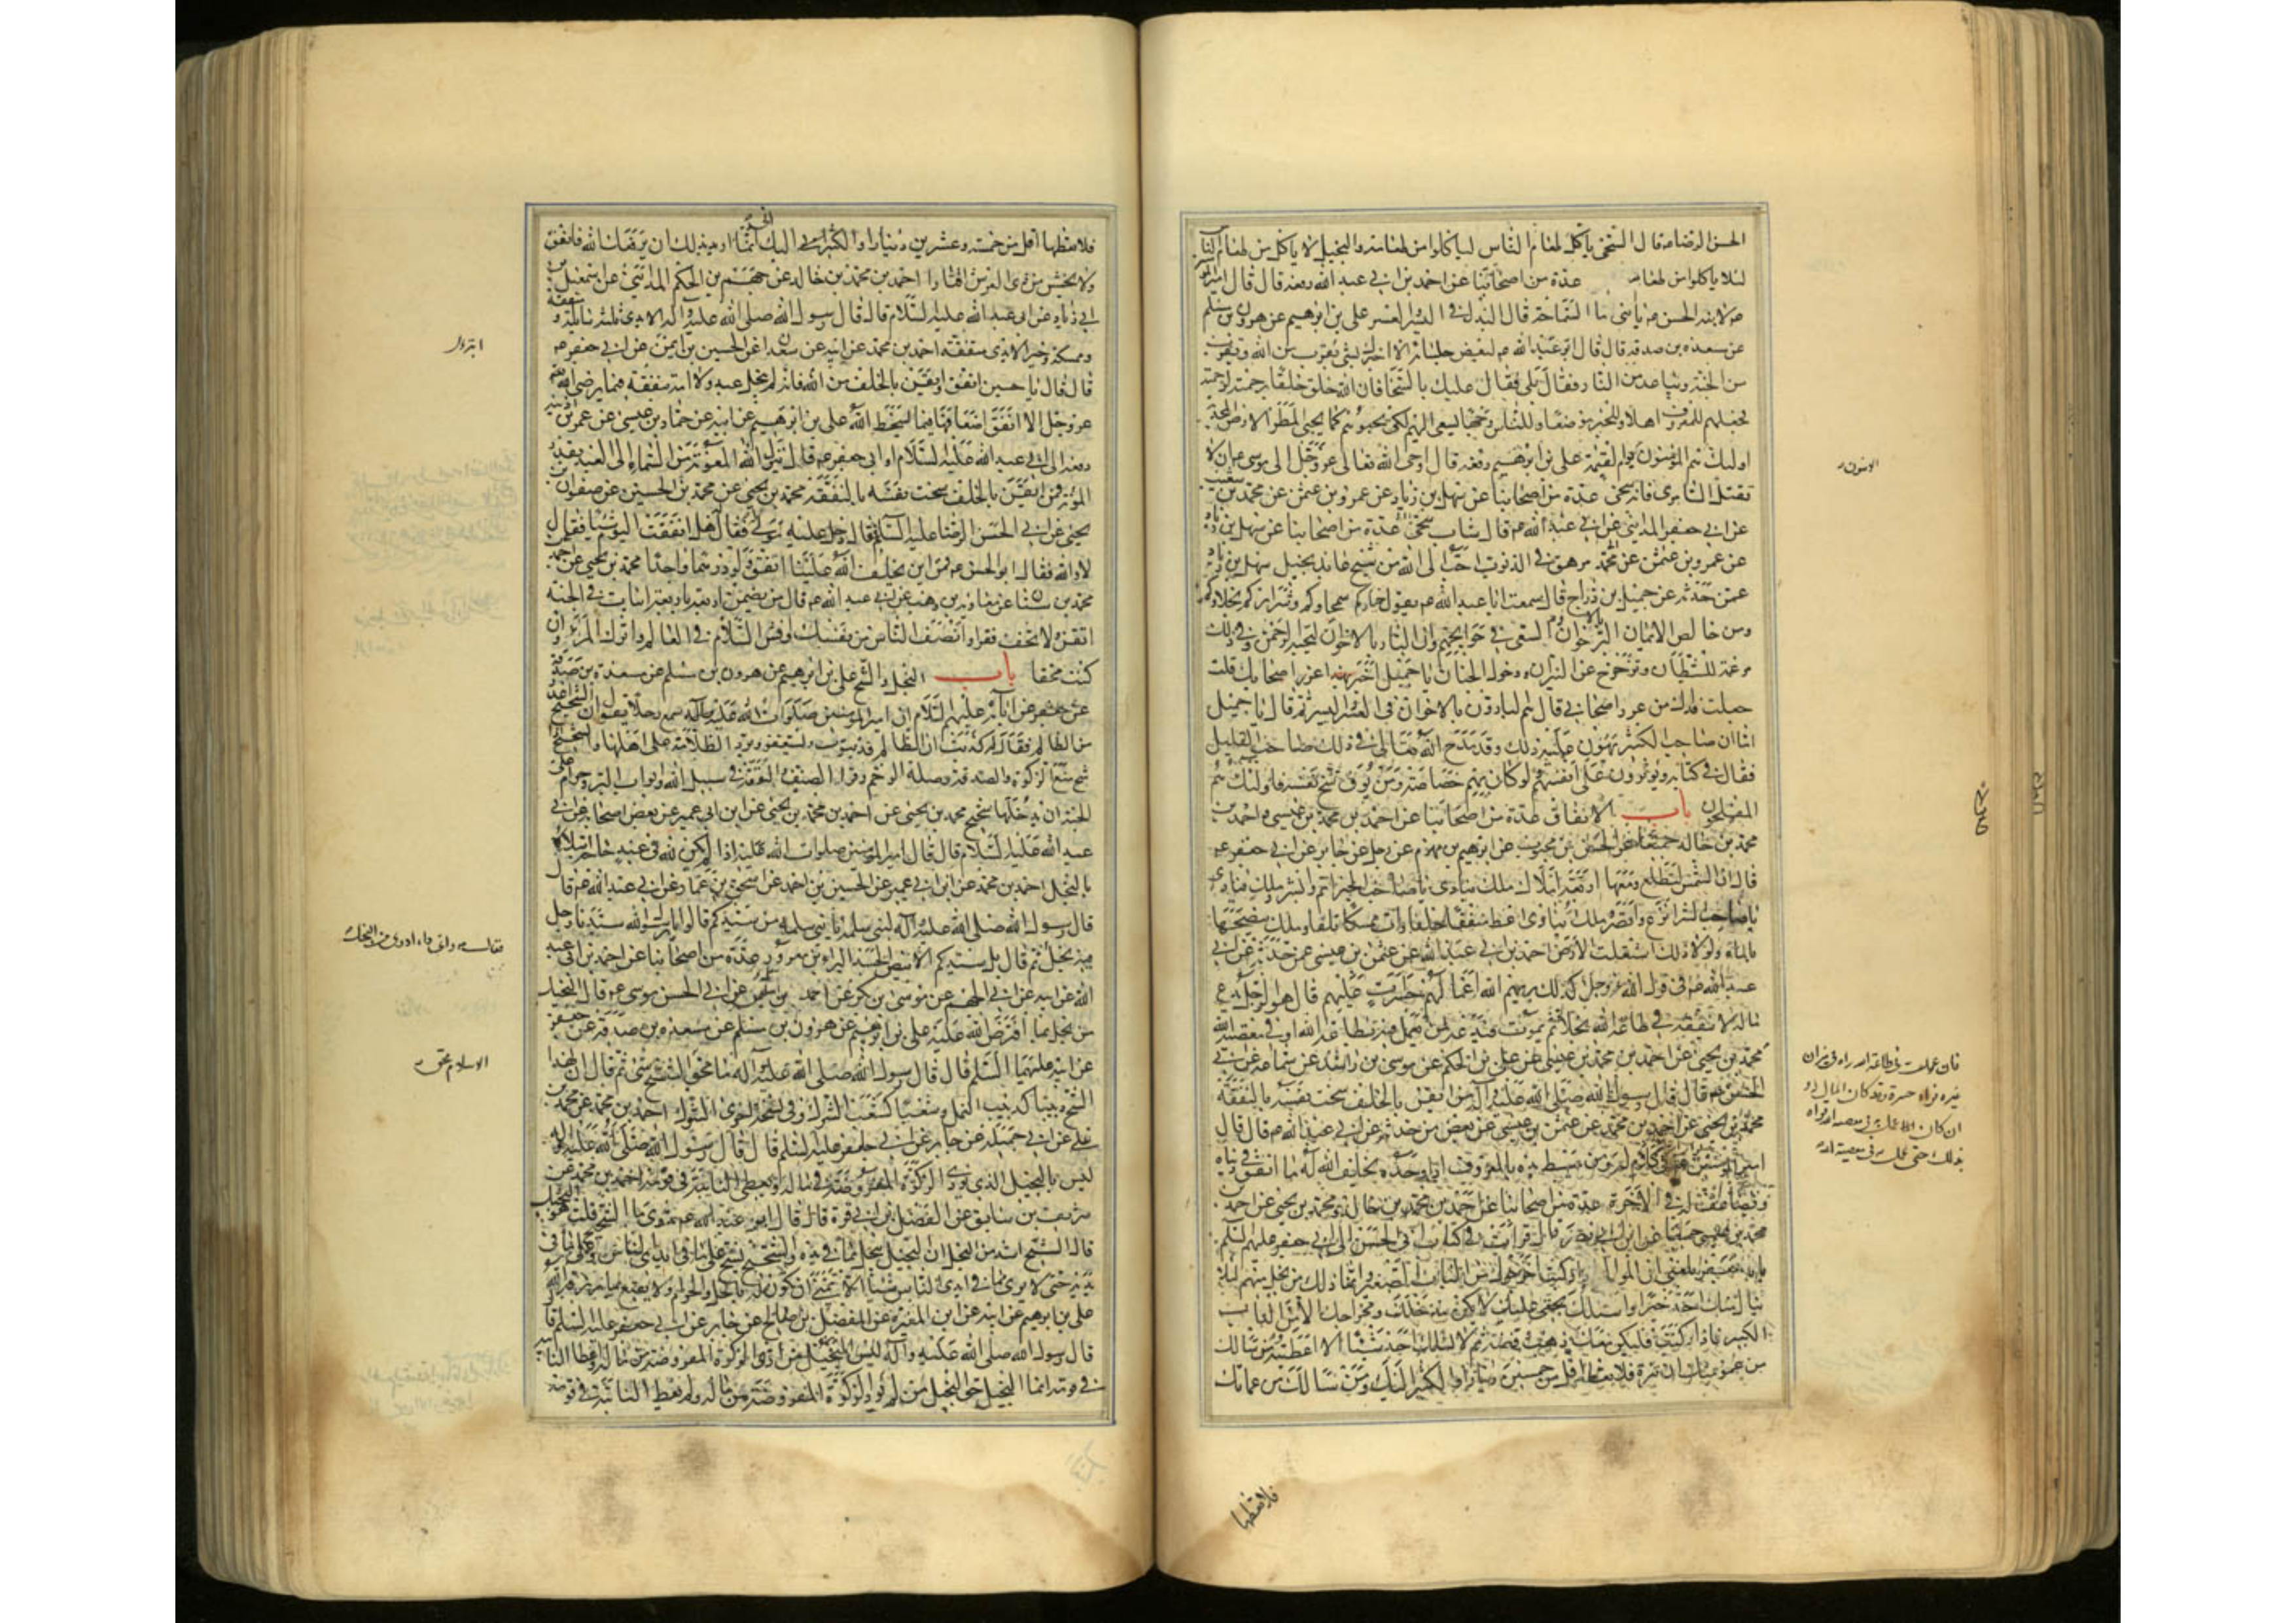 الحسن الرضا ع قال السخى ياكل طعام الناس لياكلوا من طعامه والبخيل لا ياكل من طعام الناس
لئلا ياكلوا من طعامه عدة من اصحابنا عن احمد بن ابى عبد الله رفعه قال قال امير المؤ
ع لابنه الحسن ع يا بنى ما السماحة قال البذل فى اليسر والعسر على بن ابرهيم عن هرون بن مسلم
عن مسعدة بن صدقة قال قال ابو عبد الله ع لبعض جلسائه الا اخبرك بشئ يقرب من الله ويقرب
من الجنة ويباعد من النار فقال بلى فقال عليك بالسخاء فان الله خلق خلقا برحمته لرحمته
فجعلهم للمعروف اهلا وللخير موضعا وللناس وجها يسعى اليهم لكى يحيوهم كما يحيى المطر الارض المجدبة
اولئك هم المؤمنون يوم القيمة على بن ابرهيم رفعه قال اوحى الله تعالى عز وجل الى موسى ع ان لا
تقتل السامرى فانه سخى عدة من اصحابنا عن سهل بن زياد عن عمرو بن عثمن عن محمد بن شعيب
عن ابى جعفر المداينى عن ابى عبد الله ع قال شاب سخى عدة من اصحابنا عن سهل بن زياد
عن عمرو بن عثمن عن محمد مرهق فى الذنوب احب الى الله من شيخ عابد بخيل سهل بن زياد
عمن حدثه عن جميل بن دراج قال سمعت ابا عبد الله ع يقول خياركم سمحاؤكم وشراركم بخلاؤكم
ومن خالص الايمان البر بالاخوان والسعى فى حوايجهم وان البار بالاخوان ليحبه الرحمن وفى ذلك
مرغمة للشيطان وتزحزح عن النيران ودخول الجنان يا جميل اخبر بهذا غرر اصحابك قلت
جعلت فداك من غرر اصحابى قال هم البارون بالاخوان فى العسر واليسر ثم قال يا جميل
اما ان صاحب الكثير يهون عليه ذلك وقد مدح الله تعالى فى ذلك صاحب القليل
فقال فى كتابه ويوثرون على انفسهم ولو كان بهم خصاصة ومن يوق شح نفسه فاولئك هم
المفلحون باب الانفاق عدة من اصحابنا عن احمد بن محمد بن عيسى واحمد بن
محمد بن خالد جميعا عن الحسن بن محبوب عن ابرهيم بن مهزم عن رجل عن جابر عن ابى جعفر ع
قال ان الشمس لتطلع ومعها اربعة املاك ملك ينادى يا صاحب الخير اتم وابشر وملك ينادى
يا صاحب الشر انزع واقصر وملك ينادى اعط منفقا خلفا وات ممسكا تلفا وملك ينضحها
بالماء ولولا ذلك اشتعلت الارض احمد بن ابى عبد الله عن عثمن بن عيسى عمن حدثه عن ابى
عبد الله ع فى قول الله عز وجل كذلك يريهم الله اعمالهم حسرات عليهم قال هو الرجل يدع
ماله لا ينفقه فى طاعة الله بخلا ثم يموت فيدعه لمن يعمل فيه بطاعة الله او فى معصية الله
محمد بن يحيى عن احمد بن محمد بن عيسى عن على بن الحكم عن موسى بن راشد عن سماعة عن ابى
الحسن ع قال قال رسول الله صلى الله عليه وآله من ايقن بالخلف سخت نفسه بالنفقة
محمد بن يحيى عن احمد بن محمد عن عثمن بن عيسى عن بعض من حدثه عن ابى عبد الله ع قال قال
امير المؤمنين ع فى كلام له ومن يبسط يده بالمعروف اذا وجده يخلف الله له ما انفق فى دنياه
ويضاعف له فى الاخرة عدة من اصحابنا عن احمد بن محمد بن خالد ومحمد بن يحيى عن احمد بن
محمد بن عيسى جميعا عن ابن ابى نصر قال قرات فى كتاب ابى الحسن الى ابى جعفر عليهم السلم
يا ابا جعفر بلغنى ان الموالى اذا ركبت اخرجوك من الباب الصغير وانما ذلك من بخل منهم لئلا
ينال منك احد خيرا واسئلك بحقى عليك لا يكن مدخلك ومخرجك الا من الباب
الكبير فاذا ركبت فليكن معك ذهب وفضة ثم لا يسئلك احد شيئا الا اعطيته ومن سالك
من عمومتك ان تبره فلا تعطه اقل من خمسين دينارا والكثير اليك ومن سالك من عماتك
فلا تعطها
الاسنون
فان عمل به فى طاعة الله راه فى ميزان
غيره فراه حسرة وقد كان المال له
فلا تعطها اقل من خمسة وعشرين دينارا والكثير اليك انى انما اريد بذلك ان يرفعك الله فانفق
ولا تخش من ذى العرش اقتارا احمد بن محمد بن خالد عن جهم بن الحكم المداينى عن اسمعيل بن
ابى زياد عن ابى عبد الله عليه السلام قال قال رسول الله صلى الله عليه وآله الايدى ثلثة سائلة ومنفقة
وممسكة وخير الايدى منفقة احمد بن محمد عن ابيه عن سعدان عن الحسين بن ايمن عن ابى جعفر ع
قال قال يا حسين انفق وايقن بالخلف من الله فانه لم يبخل عبد ولا امة بنفقة فيما يرضى الله
عز وجل الا انفق اضعافها فيما يسخط الله على بن ابرهيم عن ابيه عن حماد بن عيسى عن عمر بن اذينه
رفعه الى ابى عبد الله عليه السلام او ابى جعفر ع قال ينزل الله المعونة من السماء الى العبد بقدر
المؤنة فمن ايقن بالخلف سخت نفسه بالنفقة محمد بن يحيى عن محمد بن الحسين عن صفوان بن
يحيى عن ابى الحسن الرضا عليه السلام قال دخل عليه مولى له فقال له هل انفقت اليوم شيئا فقال
لا والله فقال ابو الحسن ع فمن اين يخلف الله علينا انفق ولو درهما واحدا محمد بن يحيى عن احمد
محمد بن سنان عن معاوية بن وهب عن ابى عبد الله ع قال من يضمن اربعة باربعة ابيات فى الجنة
انفق ولا تخف فقرا وانصف الناس من نفسك وافش السلام فى العالم واترك المراء وان
كنت محقا باب البخل والشح على بن ابرهيم عن هرون بن مسلم عن مسعدة بن صدقة
عن جعفر عن آبائه عليهم السلام ان امير المؤمنين صلوات الله عليه وآله سمع رجلا يقول ان الشحيح اعذر
من الظالم فقال له كذبت ان الظالم قد يتوب ويستغفر ويرد الظلامة على اهلها والشحيح اذا
شح منع الزكوة والصدقة وصلة الرحم وقرى الضيف والنفقة فى سبيل الله وابواب البر وحرام على
الجنة ان يدخلها شحيح محمد بن يحيى عن احمد بن محمد بن يحيى عن ابن ابى عمير عن بعض اصحابنا عن ابى
عبد الله عليه السلام قال قال امير المؤمنين صلوات الله عليه اذا لم يكن لله فى عبد حاجة ابتلاه
بالبخل احمد بن محمد عن ابن ابى عمير عن الحسين بن احمد عن اسحق بن عمار عن ابى عبد الله ع قال
قال رسول الله صلى الله عليه وآله لبنى سلمة يا بنى سلمة من سيدكم قالوا يا رسول الله سيدنا رجل
فيه بخل ثم قال بل سيدكم الابيض الجسد البراء بن معرور عدة من اصحابنا عن احمد بن ابى عبد
الله عن ابيه عن ابى الجهم عن موسى بن بكر عن احمد بن سليمن عن ابى الحسن موسى ع قال البخيل
من بخل بما افترض الله عليه على بن ابرهيم عن هرون بن مسلم عن مسعدة بن صدقة عن جعفر
عن ابيه عليهما السلم قال قال رسول الله صلى الله عليه وآله ما محق الشح شئ ثم قال ان لهذا
الشح دبيبا كدبيب النمل وشعبا كشعب الشرك وفى نسخة اخرى الشوك احمد بن محمد عن محمد بن
على عن ابى جميلة عن جابر عن ابى جعفر عليه السلم قال قال رسول الله صلى الله عليه وآله
ليس بالبخيل الذى يودى الزكوة المفروضة فى ماله ويعطى النائبة فى قومه احمد بن محمد عن
شريف بن سابق عن الفضل بن ابى قرة قال قال ابو عبد الله ع تدرى ما الشحيح قلت هو البخيل
قال الشح اشد من البخل ان البخيل يبخل بما فى يده والشحيح يشح على ما فى ايدى الناس وعلى ما فى
يديه حتى لا يرى مما فى ايدى الناس شيئا الا تمنى ان يكون له بالحل والحرام ولا يقنع بما رزقه الله
على بن ابرهيم عن ابيه عن ابن المغيرة عن المفضل بن صالح عن جابر عن ابى جعفر عليه السلم قال
قال رسول الله صلى الله عليه وآله ليس البخيل من ادى الزكوة المفروضة من ماله واعطى النائبة
فى قومه انما البخيل حق البخيل من لم يؤد الزكوة المفروضة من ماله ولم يعط النائبة فى قومه
فقال ع واى داء ادوى من البخل
الاسلام محق